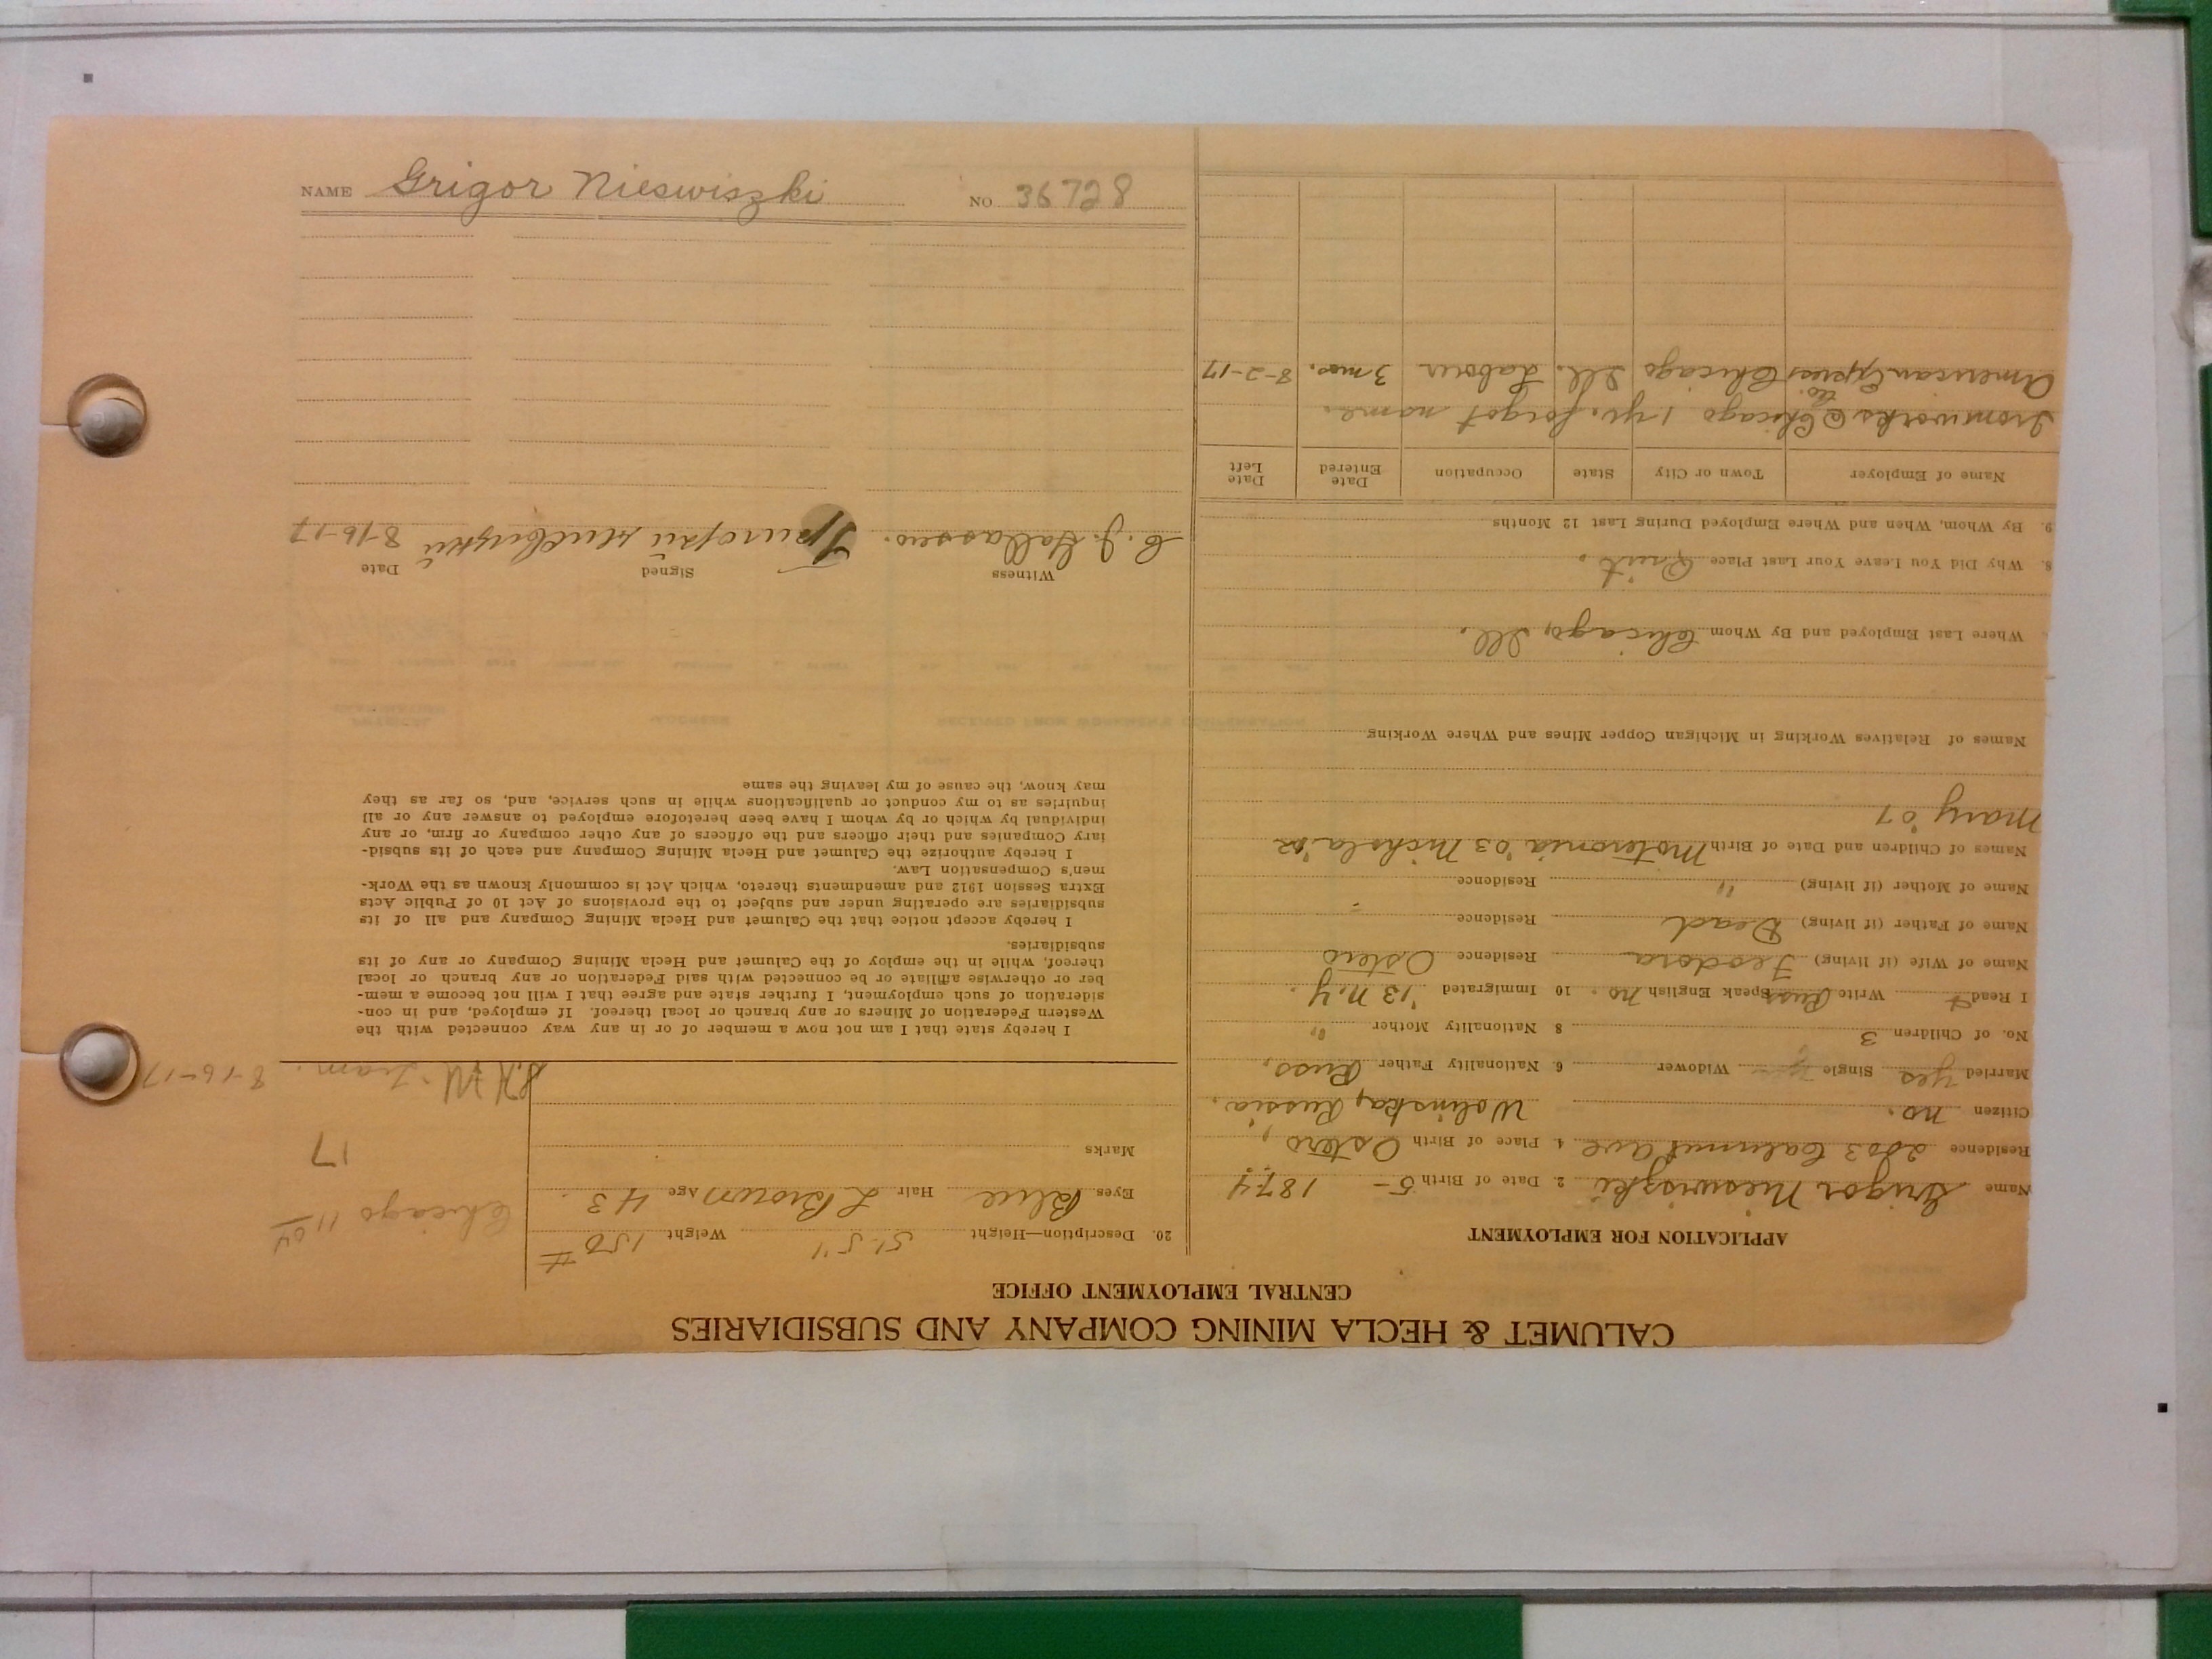 NAME Grigor Nieswiszki NO 36728
CALUMET & HECLA MINING COMPANY AND SUBSIDIARIES
CENTRAL EMPLOYMENT OFFICE
APPLICATION FOR EMPLOYMENT
Name Grigor Nieswiszki 2. Date of Birth 5- 1874
Residence 2003 Calumet Ave 4. Place of Birth Ostero,
Citizen no. Wolinska, Russia.
Married yes Single Widower 6. Nationality Father Russ.
No. of Children 3 8 Nationality Mother "
I Read Write Russ Speak English no. 10 Immigrated '13 N.Y.
Name of Wife (if living) Feodora Residence Ostero
Name of Father (if living) Dead Residence -
Name of Mother (if living) " Residence
Names of Children and Date of Birth Moteronia '03 Nichola '02
Mary '07
Names of Relatives Working in Michigan Copper Mines and Where Working
Where Last Employed and By Whom Chicago, Ill.
8. Why Did You Leave Your Last Place Quit.
9. By Whom, When and Where Employed During Last 12 Months
Name of Employer Town or City State Occupation Date Entered Date Left
Ironworks @ Chicago 1 yr. forgot name.
American Express Co. Chicago Ill. Labour 3 mos. 8-2-17
20. Description—Height 5'-5" Weight 150 #
Eyes Blue Hair L Brown Age 43.
Marks
Chicago 11 04
17
Tram. 8-16-17
I hereby state that I am not now a member of or in any way connected with the
Western Federation of Miners or any branch or local thereof. If employed, and in con-
sideration of such employment, I further state and agree that I will not become a mem-
ber or otherwise affiliate or be connected with said Federation or any branch or local
thereof, while in the employ of the Calumet and Hecla Mining Company or any of its
subsidiaries.
I hereby accept notice that the Calumet and Hecla Mining Company and all of its
subsidiaries are operating under and subject to the provisions of Act 10 of Public Acts
Extra Session 1912 and amendments thereto, which Act is commonly known as the Work-
men's Compensation Law.
I hereby authorize the Calumet and Hecla Mining Company and each of its subsid-
iary Companies and their officers and the officers of any other company or firm, or any
individual by which or by whom I have been heretofore employed to answer any or all
inquiries as to my conduct or qualifications while in such service, and, so far as they
may know, the cause of my leaving the same
Witness Signed Date
C. J. 8-16-17